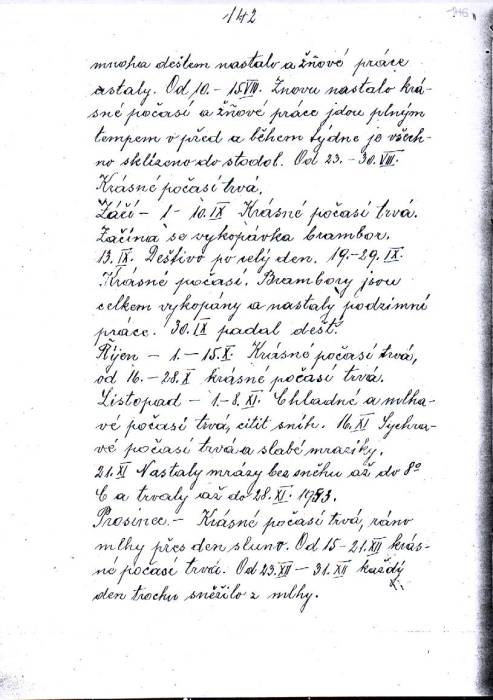 142
mnoha deštem nastalo a žňové práce
ustaly. Od 10. - 15. VIII. Znovu nastalo krá-
sné počasí a žňové práce jdou plným
tempem v před a během týdne je všech-
no sklizeno do stodol. Od 23. - 30. VIII.
Krásné počasí trvá.
Záčí - 1 - 10. IX Krásné počasí trvá.
Začíná se vykopávka brambor.
13. IX. Deštivo po celý den. 19. - 29. IX.
Krásné počasí. Brambory jsou
celkem vykopány a nastaly podzimní
práce. 30. IX padal déšť.
Říjen - 1. - 15. X. Krásné počasí trvá,
od 16. - 28. X krásné počasí trvá.
Listopad - 1. - 8. XI. Chladné a mlha-
vé počasí trvá, cítit sníh. 16. XI Sychra-
vé počasí trvá a slabé mrazíky.
21. XI Nastaly mrázy bez sněhu až do 8°
C a trvaly až do 28. XI. 1953.
Prosinec. - Krásné počasí trvá, ráno
mlhy přes den sluno. Od 15 - 21. XII krás-
né počasí trvá. Od 23. XII - 31. XII každý
den trochu sněžilo z mlhy.